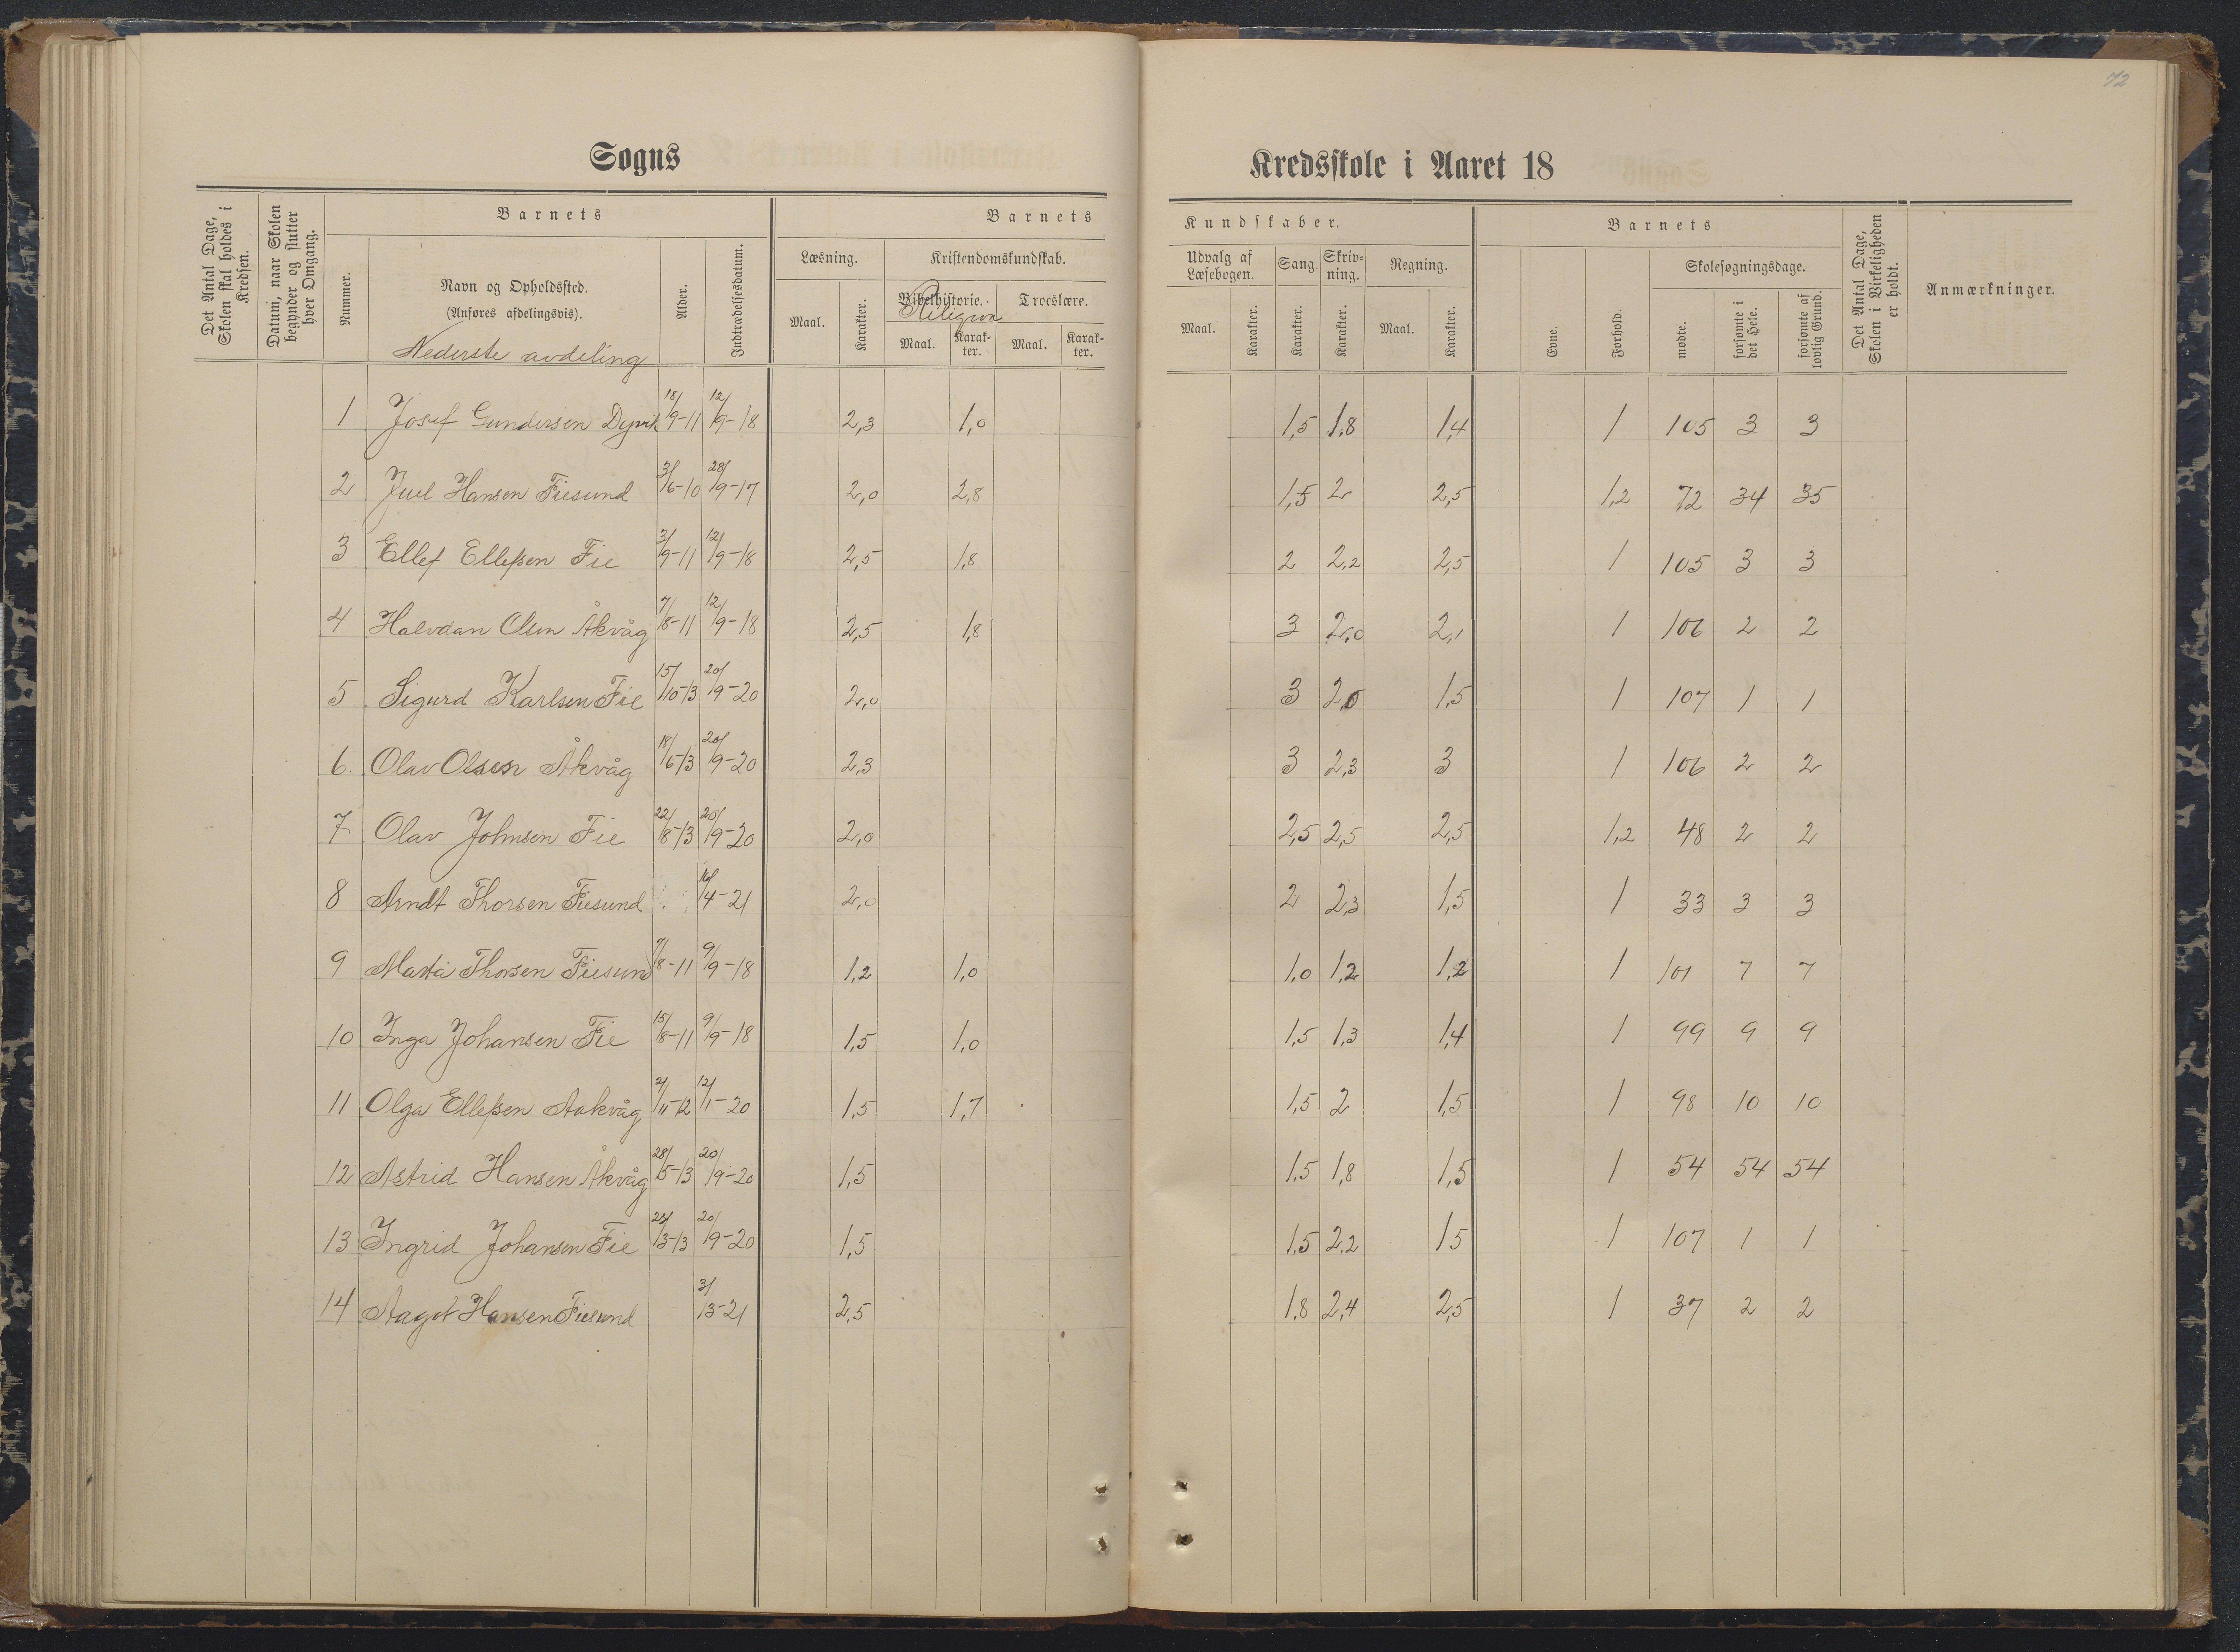 72
Sogns Kredsskole i Aaret 18
Det Antal Dage, Skolen skal holdes i Kredsen.
Datum, naar Skolen begynder og slutter hver Omgang.
Barnets
Nummer.
Navn og Opholdssted.
(Anføres afdelingsvis).
Nederste avdeling
Alder.
Indtrædelsesdatum.
Barnets Kundskaber.
Læsning.
Maal. Karakter.
Kristendomskundskab.
Bibelhistorie. Troeslære.
Religion
Maal. Karakter. Maal. Karakter.
Udvalg af Læsebogen.
Maal. Karakter.
Sang.
Karakter.
Skrivning.
Karakter.
Regning.
Maal. Karakter.
Barnets
Evne.
Forhold.
Skolesøgningsdage.
mødte.
forsømte i det Hele.
forsømte af lovlig Grund.
Det Antal Dage, Skolen i Virkeligheden er holdt.
Anmærkninger.
1 Josef Gundersen 18/9-11 12/9-18 2,3 1,0 1,5 1,8 1,4 1 105 3 3
2 Juel Hansen Fiesund 3/6-10 28/9-17 2,0 2,8 1,5 2 2,5 1,2 72 34 35
3 Ellef Ellefsen Fie 3/9-11 12/9-18 2,5 1,8 2 2,2 2,5 1 105 3 3
4 Halvdan Olsen Åkvåg 7/8-11 12/9-18 2,5 1,8 3 2,0 2,1 1 106 2 2
5 Sigurd Karlsen Fie 15/10-13 20/9-20 2,0 3 2,0 1,5 1 107 1 1
6. Olav Olsen Åkvåg 18/6-13 20/9-20 2,3 3 2,3 3 1 106 2 2
7 Olav Johnsen Fie 22/8-13 20/9-20 2,0 2,5 2,5 2,5 1,2 48 2 2
8 Arndt Thorsen Fiesund 4-21 2,0 2 2,3 1,5 1 33 3 3
9 Marta Thorsen Fiesund 7/8-11 9/9-18 1,2 1,0 1,0 1,2 1,2 1 101 7 7
10 Inga Johansen Fie 15/8-11 9/9-18 1,5 1,0 1,5 1,3 1,4 1 99 9 9
11 Olga Ellefsen Aakvåg 2/11-12 12/1-20 1,5 1,7 1,5 2 1,5 1 98 10 10
12 Astrid Hansen Åkvåg 28/5-13 20/9-20 1,5 1,5 1,8 1,5 1 54 54 54
13 Ingrid Johansen Fie 23/3-13 20/9-20 1,5 1,5 2,2 15 1 107 1 1
14 Aagot Hansen Fiesund 3/3-21 2,5 1,8 2,4 2,5 1 37 2 2